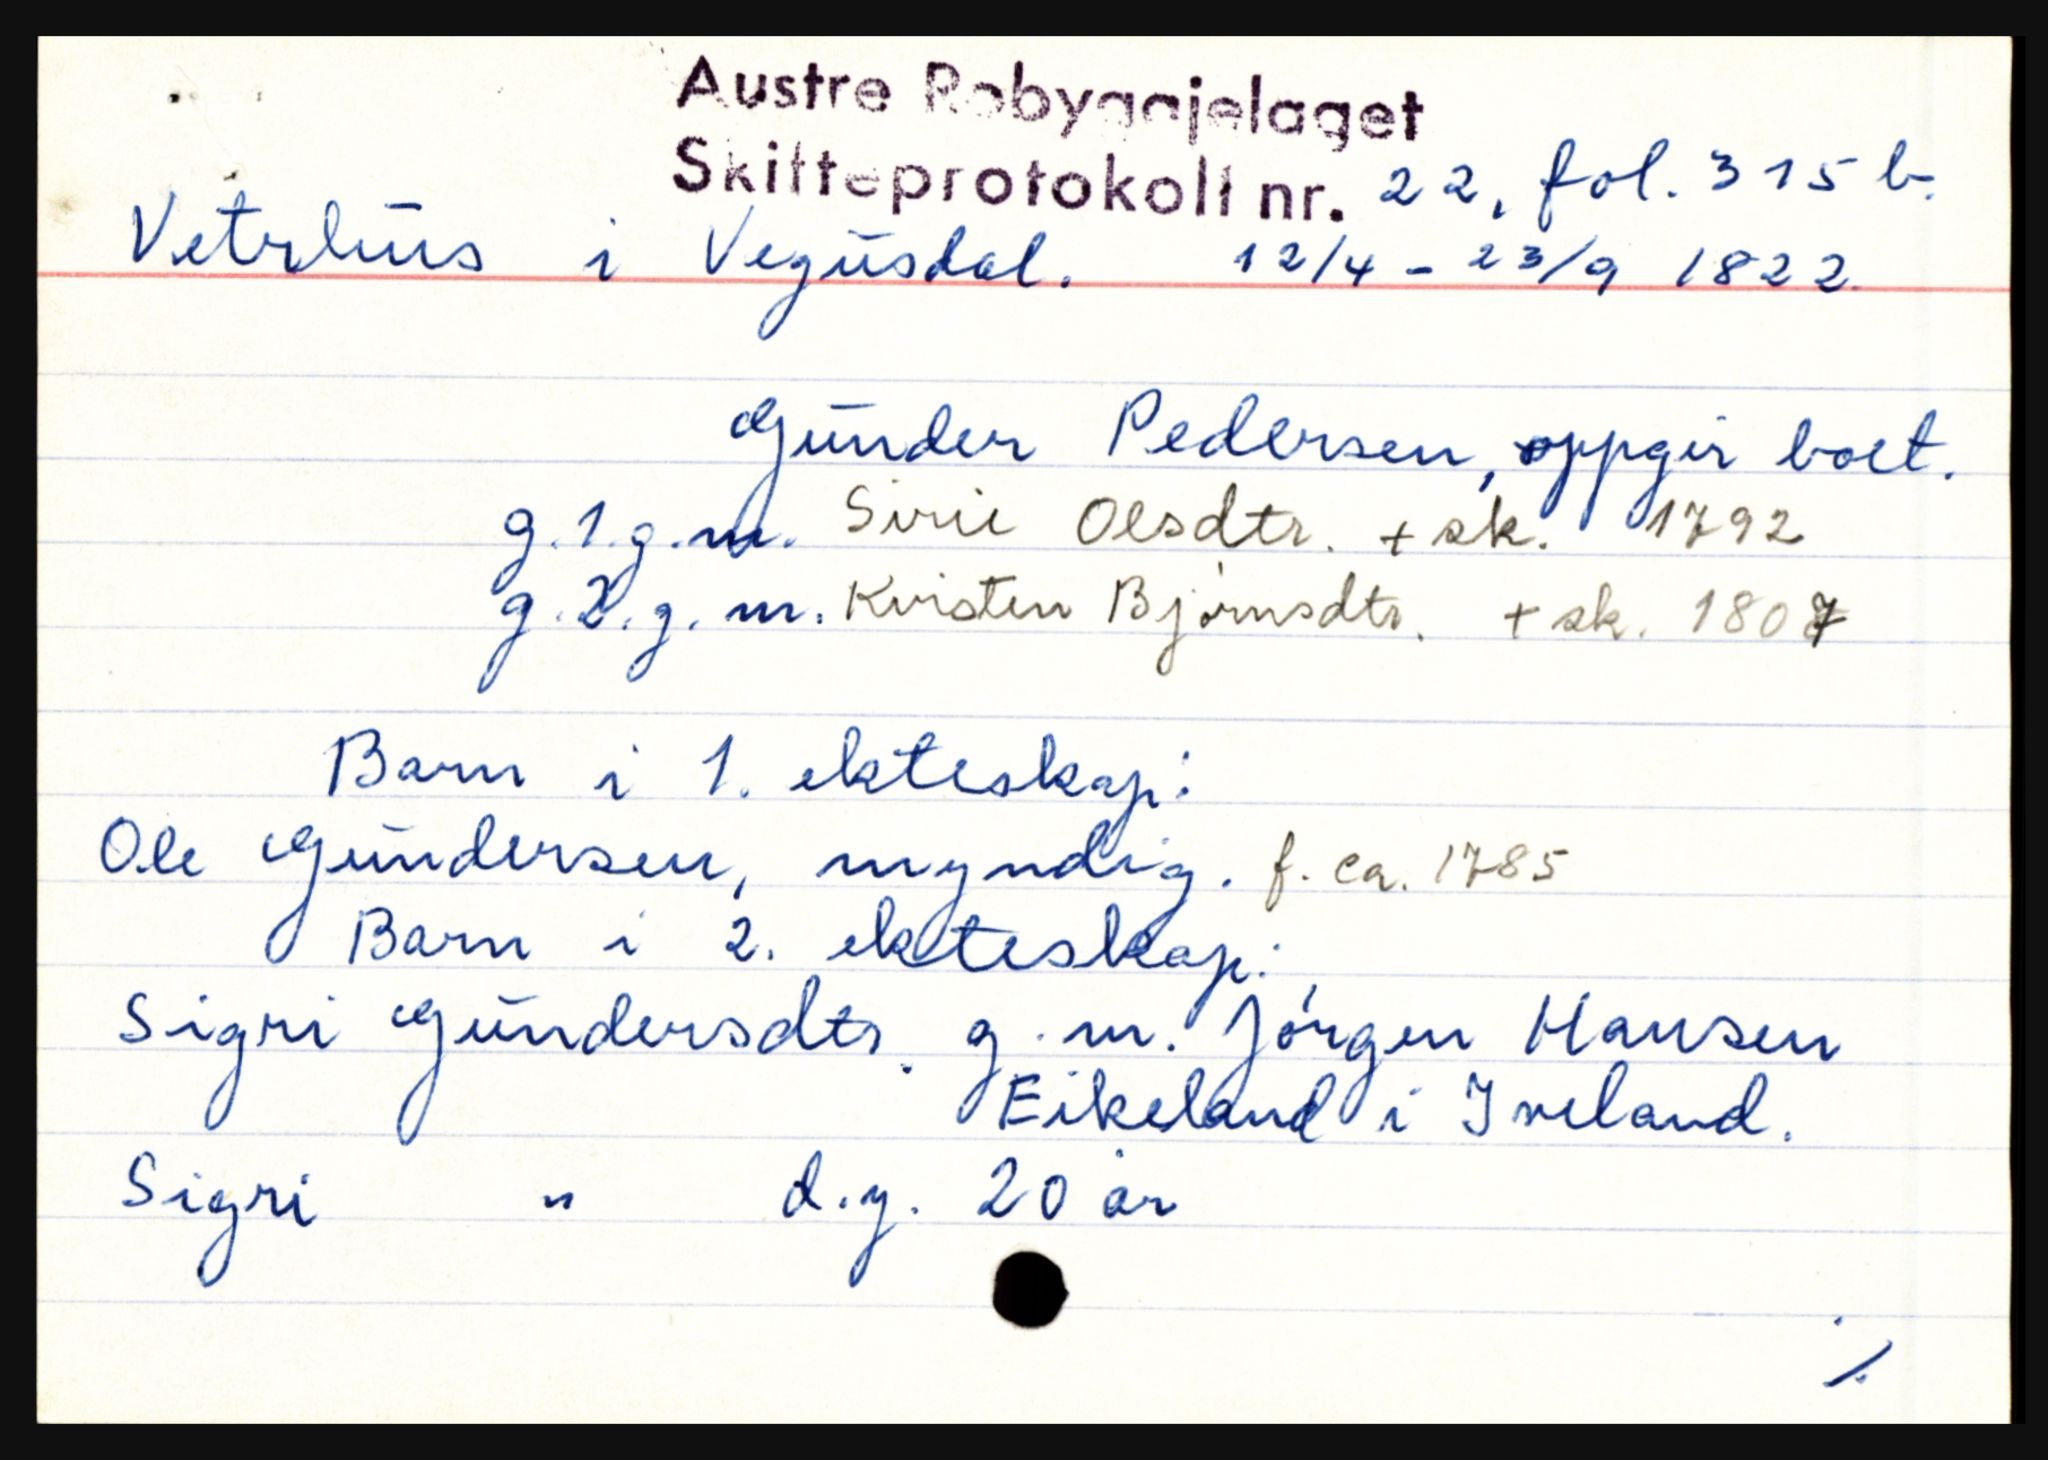 Austre Robyggjelaget
Skifteprotokoll nr. 22, fol. 315 b.
Vetrhus i Vegusdal. 12/4 - 23/9 1822.
Gunder Pedersen, oppgir boet.
g.1.g.m. Sirie Olsdtr. + sk. 1792
g.2.g.m. Kristen Bjørnsdtr. + sk. 1807
Barn i 1. ekteskap:
Ole Gundersen, myndig. f. ca. 1785
Barn i 2. ekteskap:
Sigri Gundersdtr. g.m. Jørgen Hansen
Eikeland i Iveland.
Sigri " d.y. 20 år
./.